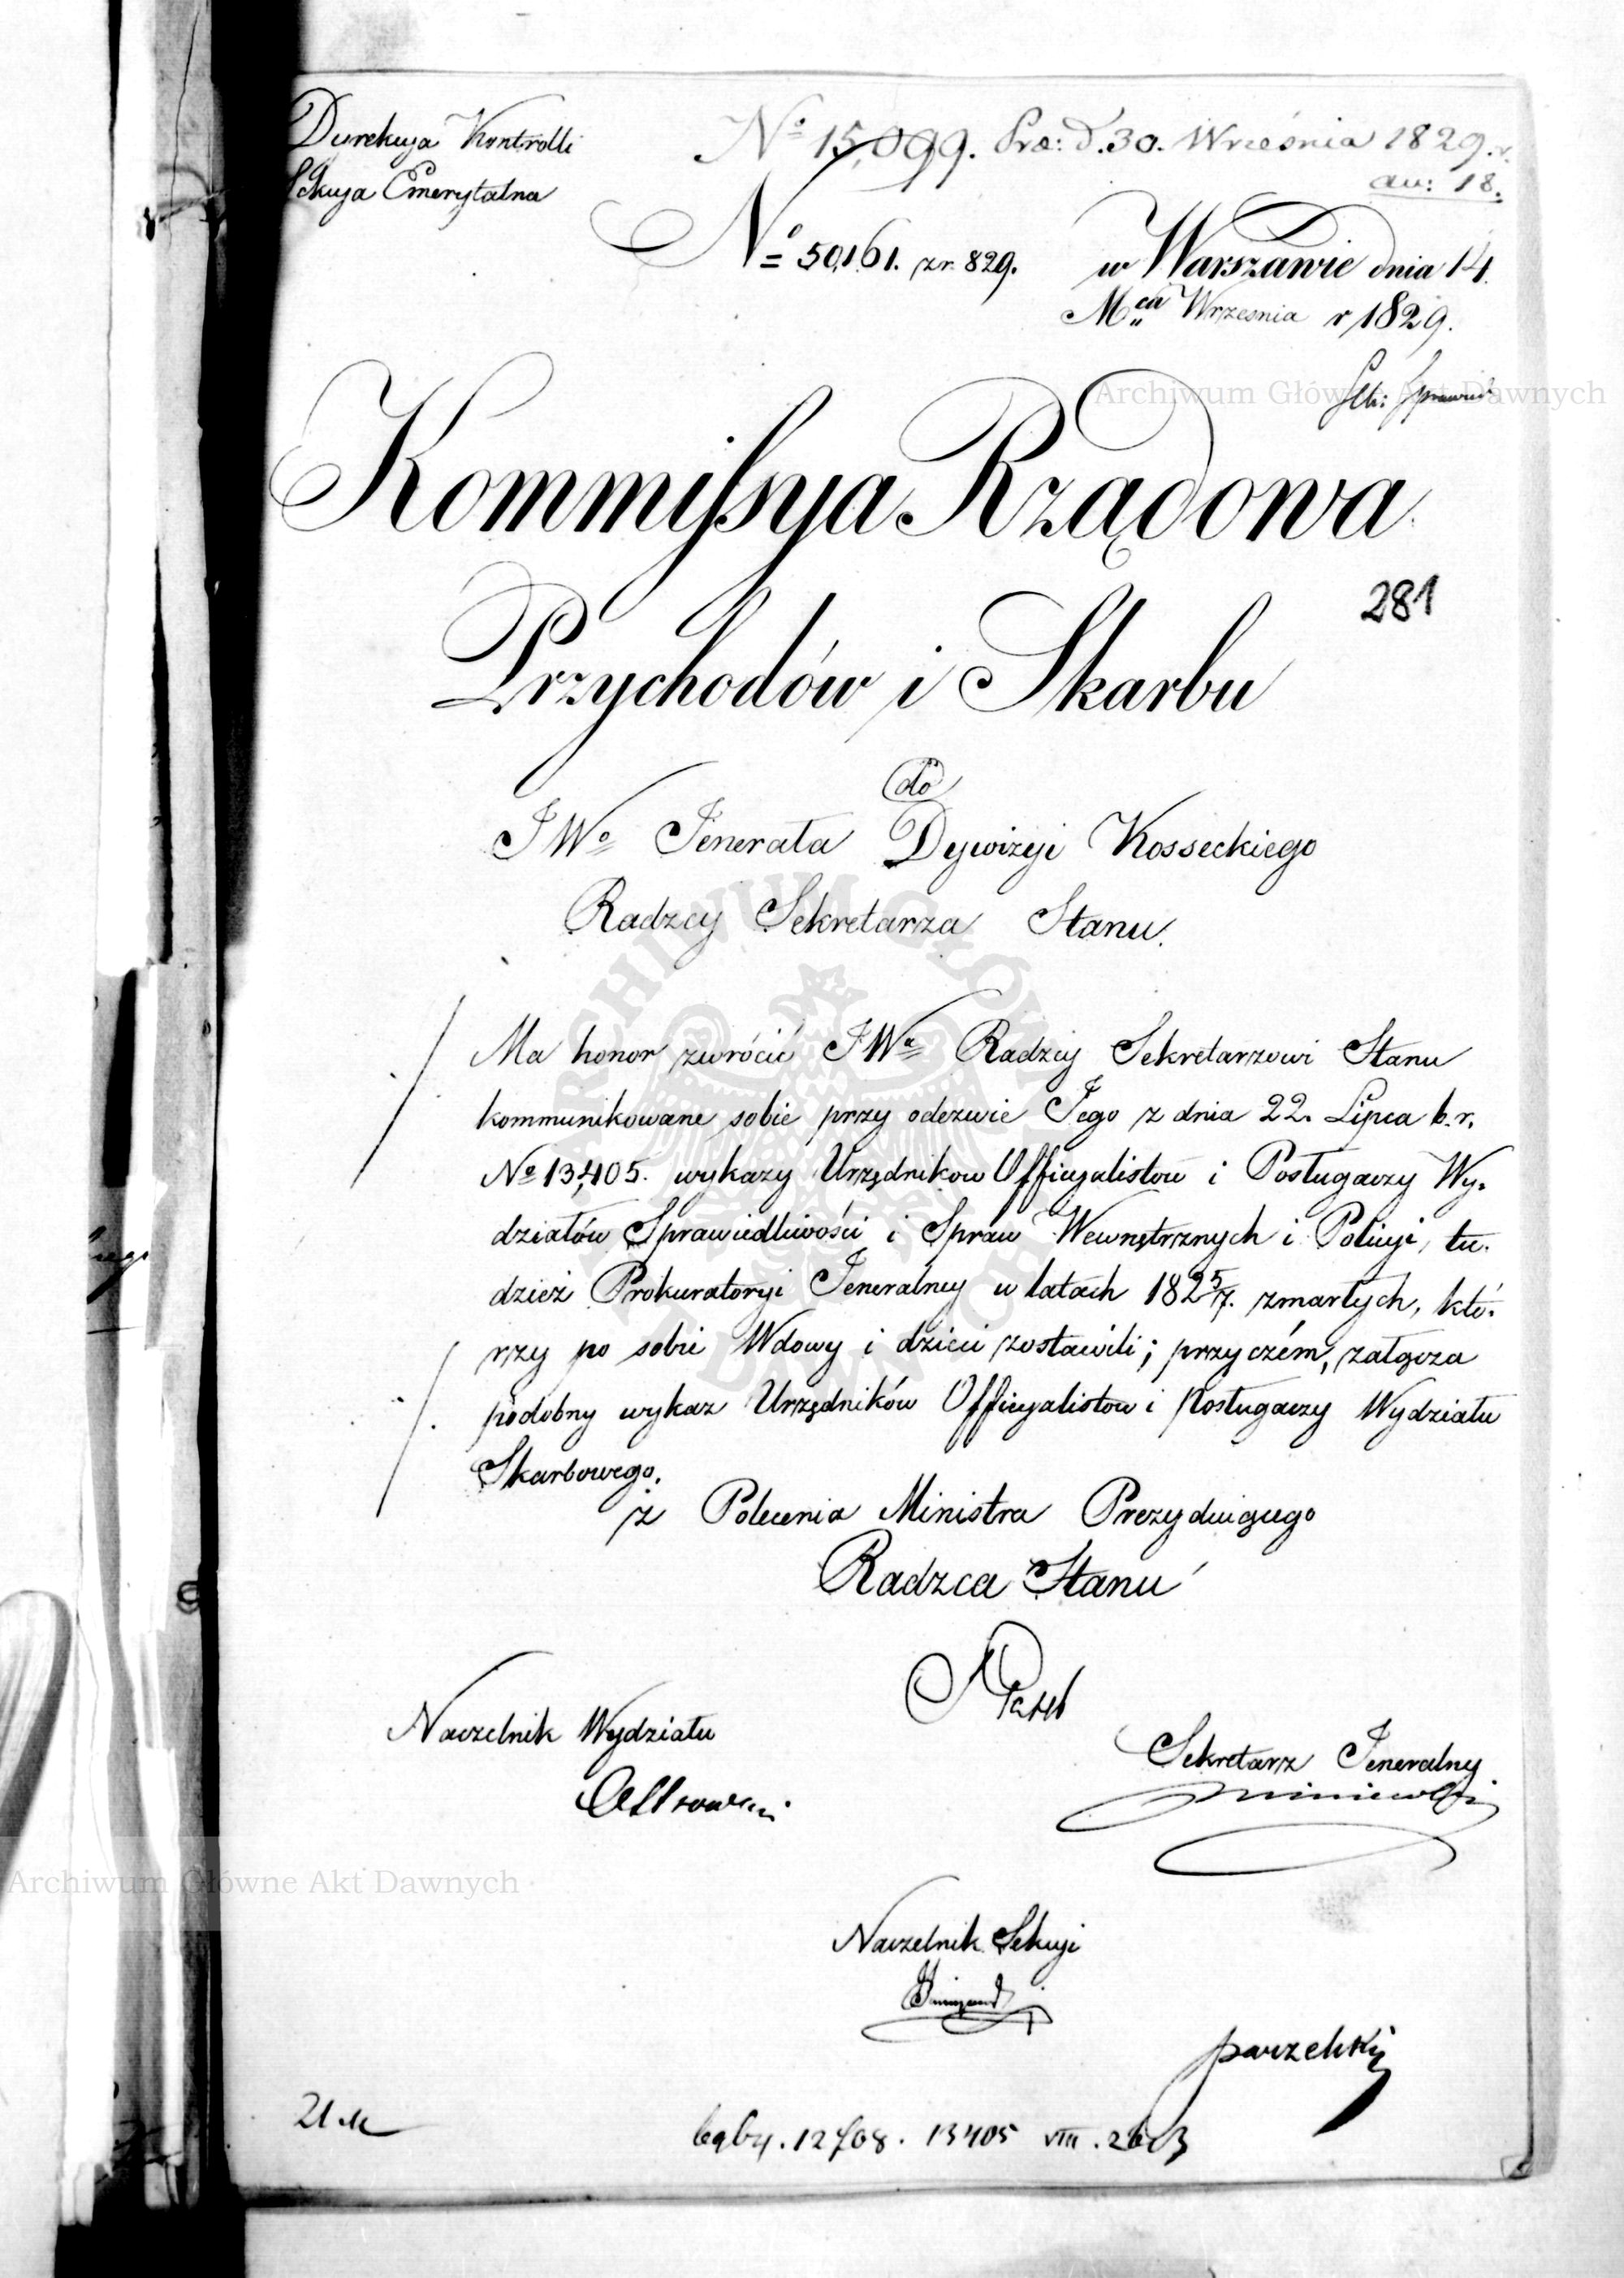 Dyrekcya Kontrolli
Sekcya Emerytalna
Nº 15,099. Prae: d. 30. Września 1829. r.
an: 18.
Nº 50,161. z r. 829.
w Warszawie dnia 14.
Mca Września r 1829.
Archiwum Główne Akt Dawnych
Kommissya Rządowa
281
Przychodów i Skarbu
do
JWo Jenerała Dywizyi Kosseckiego
Radzcy Sekretarza Stanu.
Ma honor zwrócić JWu Radzcy Sekretarzowi Stanu
kommunikowane sobie przy odezwie Jego z dnia 22. Lipca b. r.
Nº 13,405. wykazy Urzędnikow Officyalistow i Posługaczy Wy-
działów Sprawiedliwości i Spraw Wewnętrznych i Policyi, tu-
dzież Prokuratoryi Jeneralney w latach 1825/7. zmarłych, któ-
rzy po sobie Wdowy i dzieci zostawili; przyczém, załącza
podobny wykaz Urzędników Officyalistow i Posługaczy Wydziału
Skarbowego.
z Polecenia Ministra Prezyduiącego
Radzca Stanu
Naczelnik Wydziału
Sekretarz Jeneralny
Archiwum Główne Akt Dawnych
Naczelnik Sekcyi
13405 VIII.